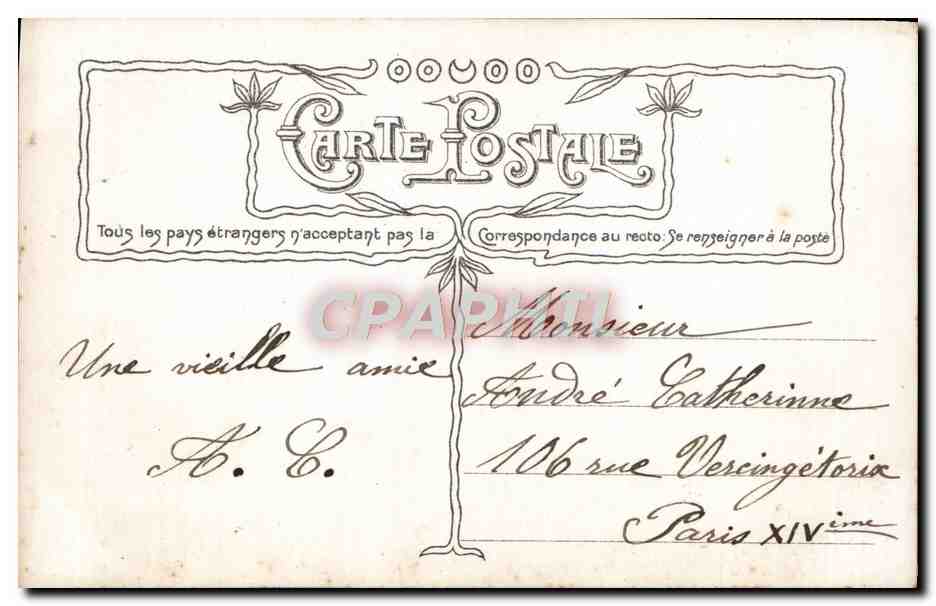 CARTE POSTALE
Tous les pays étrangers n'acceptant pas la Correspondance au recto: Se renseigner à la poste
CPAPHIL
Une vieille amie
A. C.
Monsieur
André Catherinne
106 rue Vercingétorix
Paris XIVième